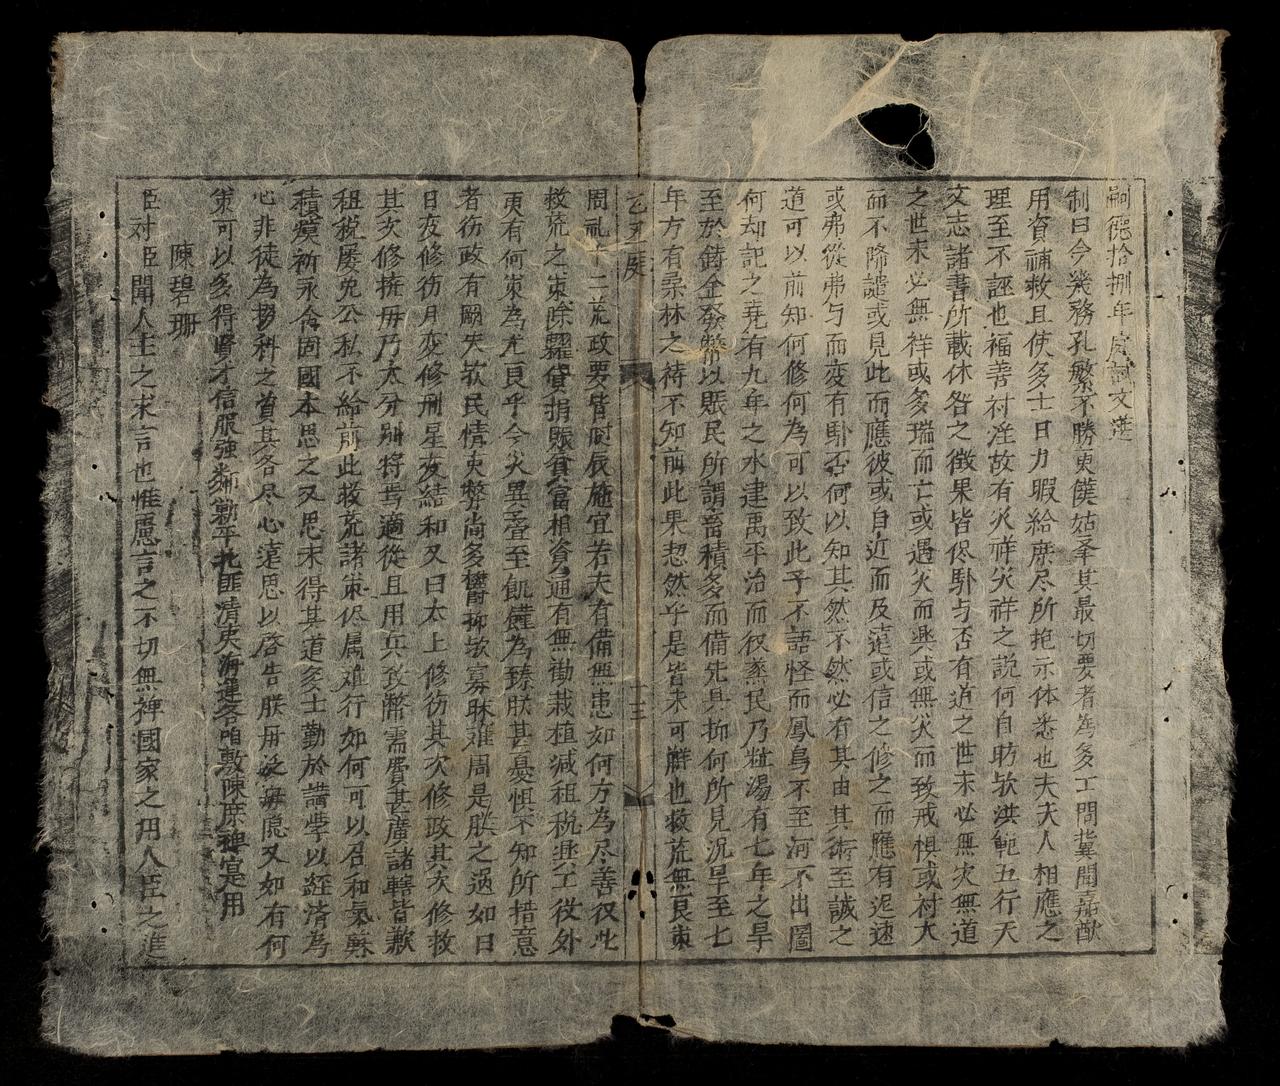 嗣德拾捌年庭試文選
制曰今幾務孔繁不勝更僕姑夆其最切要者為多工間冀聞嘉猷
用資補救且使多士日力暇給庶尽所抱示体悉也夫天人相應之
理至不誣也福善禍淫故有災祥災祥之説何自昉欤洪範五行天
文志諸書所載休咎之徵果皆符馸与否有道之世未必無灾無道
之世未必無祥或多瑞而亡或遇灾而興或無灾而致戒楔或禍大
而不降譴或見此而應彼或自近而及遠或信之修之而應有遲速
或弗從弗与而変有馸否何以知其然不然必有其由其術至誠之
道可以前知何修何為可以致此子不語怪而鳳鳥不至河不出圖
何却記之堯有九年之水逮禹平治而後烝民乃粒湯有七年之旱
至於鋳金發幣以賑民所謂畜積多而備先具抑何所見況旱至七
年方有桑林之祷不知前此果恝然乎是皆未可觧也救荒無良策
乙丑庭 十三
周礼十二荒政要皆耐辰施宜若夫有備無患如何方為尽善後此
救荒之策除糶貸捐賑貧富相資通有無勸栽植減租税興工役外
更有何策為尤良乎今灾異疊至飢饉為臻朕甚憂惧不知所措意
者彷政有闕失欤民情吏弊尚多欝抑欤寡昧难周是朕之過如日
日夜修彷月変修刑星变結和又曰太上修彷其次修政其次修救
其次修禳毋乃太分别将焉適從且用兵致幣需費甚廣諸轄皆歉
租税屡免公私不給前此救荒諸策侭属难行如何可以召和氣蘇
積瘼祈永命固國本思之又思未得其道多士勤於講學以經済為
心非徒為掇科之首其各尽心遠思以啓告朕毋泛毋隐又如有何
策可以多得賢才信服強鄰勦平北匪清夷海逹各咱敷陳庶裨寔用
陳碧珊
臣对臣聞人主之求言也惟慮言之不切無裨國家之用人臣之進